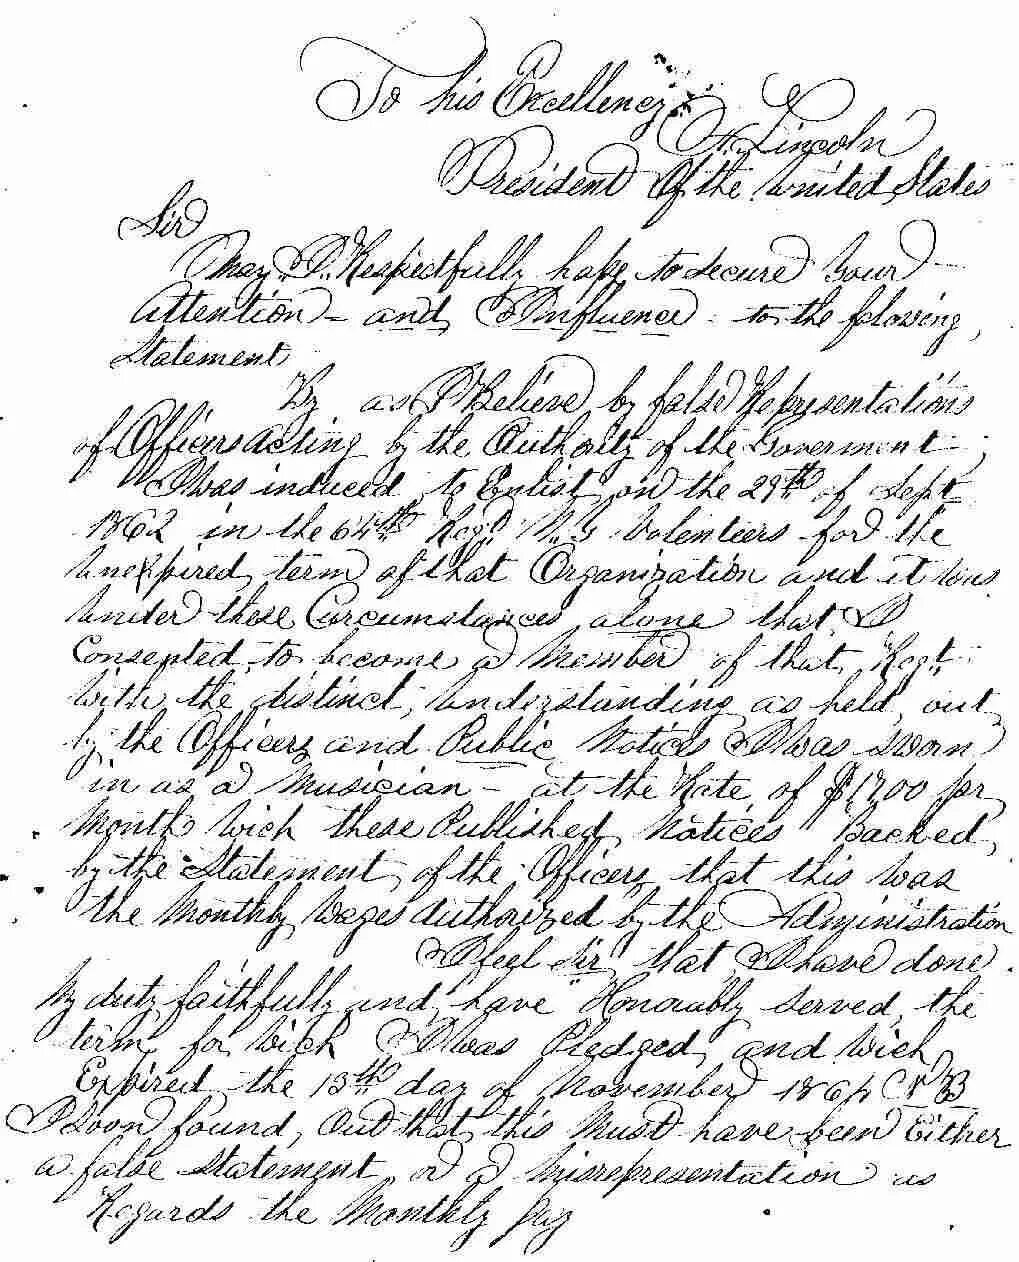 To his Excellency
A. Lincoln
President Of the United States
Sir
May I Respectfully hope to secure Your
Attention - and Influence - to the folowing
Statement
By as I Believe by false Representations
of Officers Acting by the Authority of the Goverment
I was induced to Enlist on the 29th of Sept
1862 in the 64th Regt N.Y Volenteers for the
Unexpired term of that Organization and it was
Under these Circumstances alone that I
Consented to become a Member of that Regt
With the distinct Understanding as held out
by the Officers and Public Notices I was sworn
in as a Musician - at the Rate of $1700 per
Month Wich these Published Notices Backed
by the Statement of the Officers that this was
the Monthly Wages Authorized by the Administration
I feel Sir that I have done
My duty faithfully and have Honorably served the
term for Wich I was Pledged and Wich
Expired the 13th day of November 1864 N B
I soon found Out that this Must have been Either
a false Statement or a Misrepresentation as
Regards the Monthly Pay